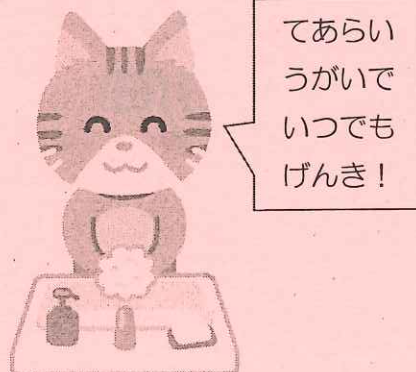 てあらい
うがいで
いつでも
げんき！